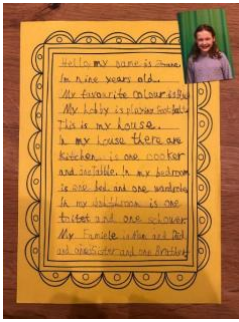 Hello, my name is
Im nine years old.
My favourite colour is
My hobby is playing football
This is my house.
In my house there are
kitchen is one cooker
and one table. In my bedroom
is one bed and one wardrobe
In my bathroom is one
toilet and one shower
My Familie is Mum and Dad
and one Sister and one Brother